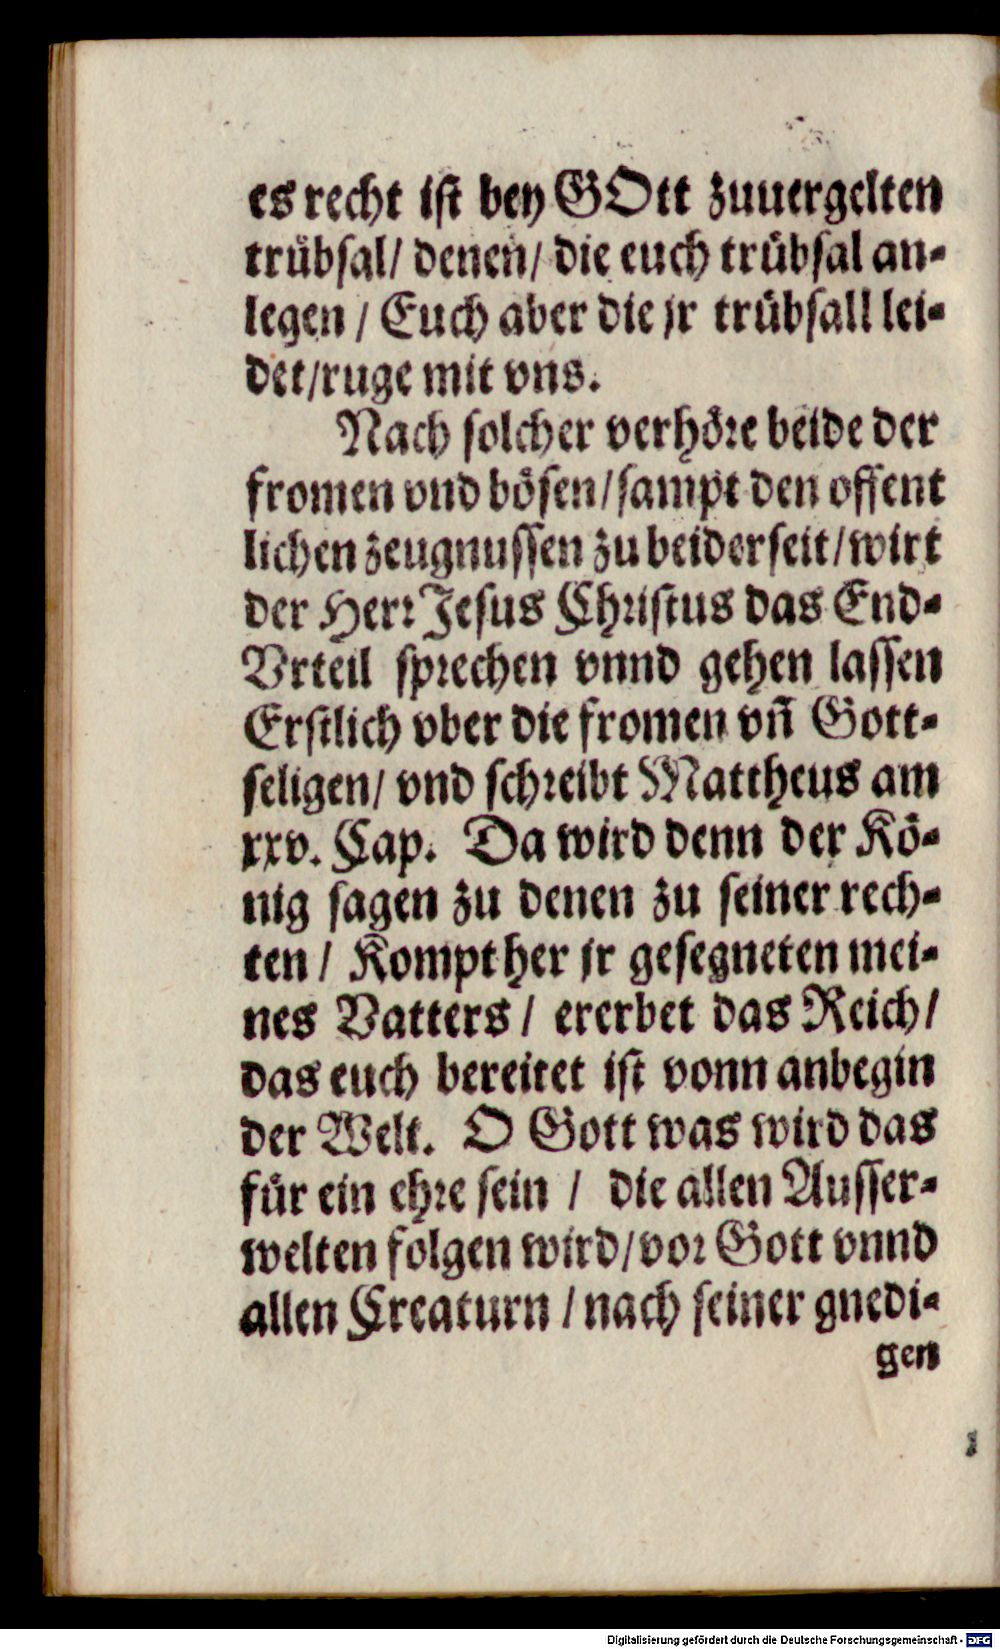 es recht ist bey GOtt zuuergelten
trübsal/ denen/ die euch trübsal an-
legen / Euch aber die jr trübsall lei-
det/ruge mit vns.
Nach solcher verhöre beide der
fromen vnd bösen/sampt den offent
lichen zeugnussen zu beiderseit/wirt
der Herr Jesus Christus das End-
Vrteil sprechen vnnd gehen lassen
Erstlich vber die fromen vn̄ Gott-
seligen/ vnd schreibt Mattheus am
xxv. Cap. Da wird denn der Kö-
nig sagen zu denen zu seiner rech-
ten / Kompt her jr gesegneten mei-
nes Vatters / ererbet das Reich/
das euch bereitet ist vonn anbegin
der Welt. O Gott was wird das
für ein ehre sein / die allen Ausser-
welten folgen wird/vor Gott vnnd
allen Creaturn / nach seiner gnedi-
gen
Digitalisierung gefördert durch die Deutsche Forschungsgemeinschaft - DFG